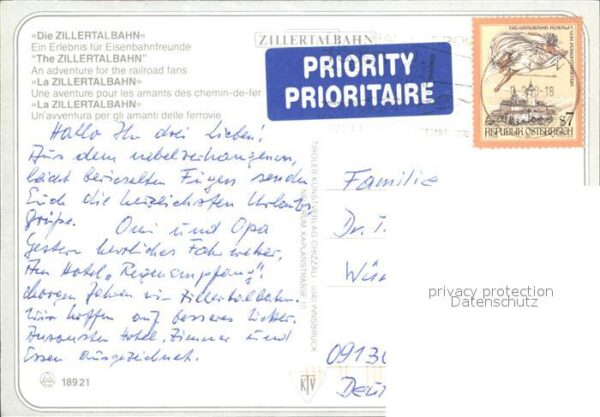 »Die ZILLERTALBAHN«
Ein Erlebnis für Eisenbahnfreunde
"The ZILLERTALBAHN"
An adventure for the railroad fans
»La ZILLERTALBAHN«
Une aventure pour les amants des chemin-de-fer
»La ZILLERTALBAHN«
Un'avventura per gli amanti delle ferrovie
ZILLERTALBAHN
PRIORITY
PRIORITAIRE
S7
REPUBLIK ÖSTERREICH
Hallo Ihr drei Lieben!
Aus dem nebelverhangenen,
leicht berieselten Fügen senden
Euch die herzlichsten Urlaubs-
grüße. Omi und Opa
Gestern herrliches Fahrwetter,
Am Hotel "Regenempfang",
fahren im Zillertalbahn.
Wir hoffen auf besseres Wetter.
Ansonsten Hotel, Zimmer und
Essen ausgezeichnet.
TIROLER KUNSTVERLAG CHIZZALI
INNSBRUCK
Familie
Dr.
privacy protection
Datenschutz
0913
18921
KTV